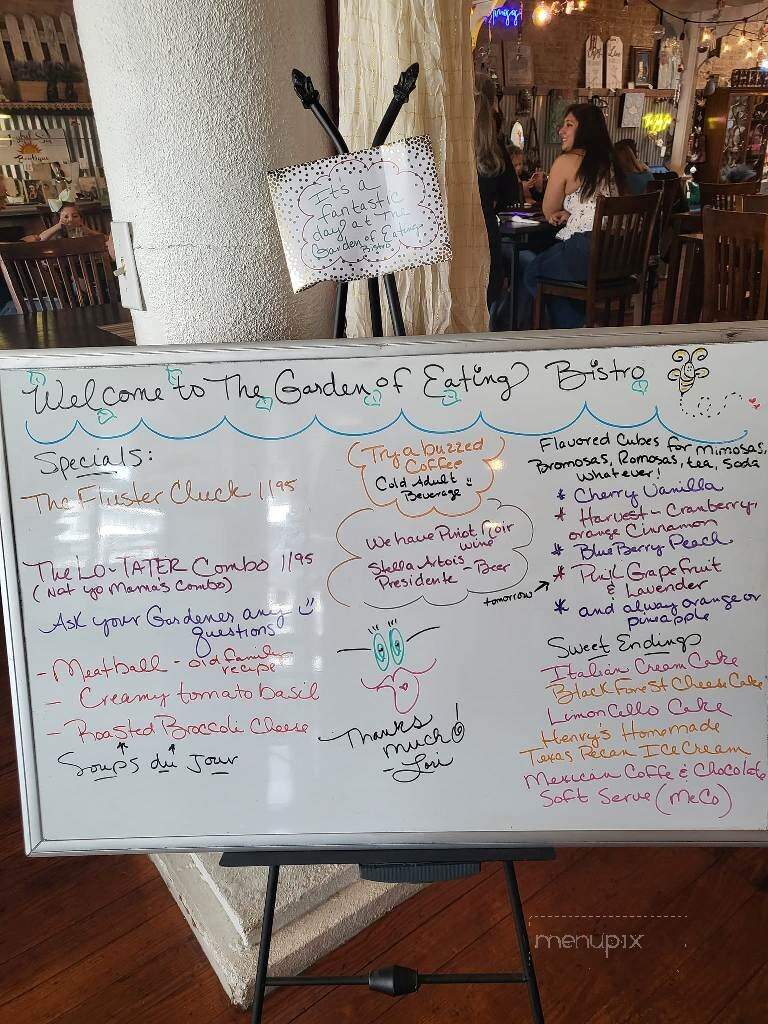 It's a
fantastic
day at The
Garden of Eating
Bistro
Welcome to The Garden of Eating Bistro
Specials:
The Fluster Cluck 1195
The LO-TATER Combo 11/95
(Not yo Mama's Combo)
Ask your Gardeners any
questions
- Meatball - old family
recipe
- Creamy tomato basil
- Roasted Broccoli Cheese
Soups du Jour
Try a buzzed
Coffee
Cold Adult
Beverage
We have Pinot Noir
wine
Stella Artois
Presidente - Beer
Thanks
much!
-Lori
Flavored Cubes for Mimosas,
Bromosas, Romosas, tea, soda
whatever!
* Cherry Vanilla
* Harvest - Cranberry,
orange Cinnamon
* BlueBerry Peach
tomorrow → * Pink Grapefruit
& Lavender
* and always orange or
pineapple
Sweet Endings
Italian Cream Cake
Black Forest Cheese Cake
LimonCello Cake
Henry's Homemade
Texas Pecan Ice Cream
Mexican Coffe & Chocolate
Soft Serve (MeCo)
menupix